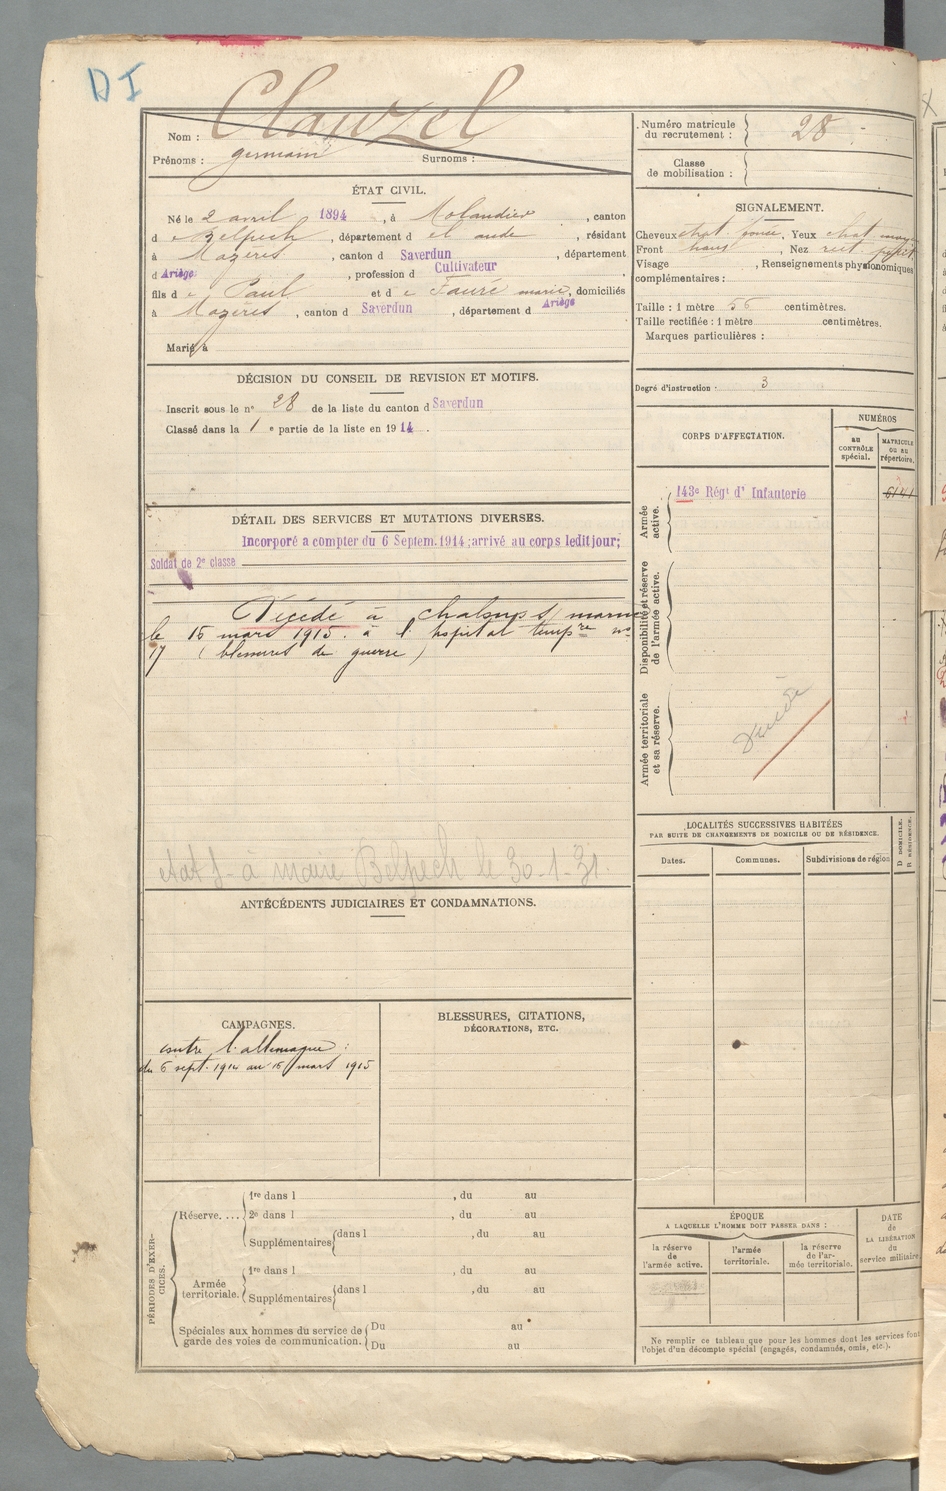 DI
Nom : Clauzel
Prénoms : germain Surnoms :
Numéro matricule
du recrutement : 28
Classe
de mobilisation :
ÉTAT CIVIL.
Né le 2 avril 1894, à Molandier, canton
de Belpech, département d el aude, résidant
à Mazères, canton d Saverdun, département
d Ariège, profession d Cultivateur,
fils d e Paul et d e Fauré marie, domiciliés
à Mazères, canton d Saverdun, département d Ariège
Marié à
SIGNALEMENT.
Cheveux chat. foncé, Yeux chat
Front, Nez rect.
Visage, Renseignements physionomiques
complémentaires :
Taille : 1 mètre 56 centimètres.
Taille rectifiée : 1 mètre centimètres.
Marques particulières :
Degré d'instruction : 3
DÉCISION DU CONSEIL DE REVISION ET MOTIFS.
Inscrit sous le n° 28 de la liste du canton d Saverdun
Classé dans la 1 e partie de la liste en 1914.
DÉTAIL DES SERVICES ET MUTATIONS DIVERSES.
Incorporé a compter du 6 Septem. 1914; arrivé au corps ledit jour;
Soldat de 2e classe
Décédé à chalons s/ marne
le 15 mars 1915. à l'hopital tempre no
17 (blessures de guerre)
etat s- à maire Belpech le 30-1-31.
CORPS D'AFFECTATION.
NUMÉROS
au
CONTRÔLE
spécial.
MATRICULE
OU AU
répertoire.
Armée
active.
143e Régt d' Infanterie
6141
Disponibilité et réserve
de l'armée active.
Armée territoriale
et sa réserve.
LOCALITÉS SUCCESSIVES HABITÉES
PAR SUITE DE CHANGEMENTS DE DOMICILE OU DE RÉSIDENCE.
Dates. Communes. Subdivisions de région
D DOMICILE.
R RÉSIDENCE.
ANTÉCÉDENTS JUDICIAIRES ET CONDAMNATIONS.
CAMPAGNES.
contre l'allemagne :
du 6 sept. 1914 au 15 mars 1915
BLESSURES, CITATIONS,
DÉCORATIONS, ETC.
PÉRIODES D'EXER-
CICES.
Réserve....
1re dans l, du au
2e dans l, du au
Supplémentaires dans l, du au
Armée
territoriale.
1re dans l, du au
Supplémentaires dans l, du au
Spéciales aux hommes du service de
garde des voies de communication.
Du au
Du au
ÉPOQUE
A LAQUELLE L'HOMME DOIT PASSER DANS :
la réserve
de
l'armée active.
l'armée
territoriale.
la réserve
de l'ar-
mée territoriale.
DATE
de
LA LIBÉRATION
du
service militaire.
Ne remplir ce tableau que pour les hommes dont les services font
l'objet d'un décompte spécial (engagés, condamnés, omis, etc.).